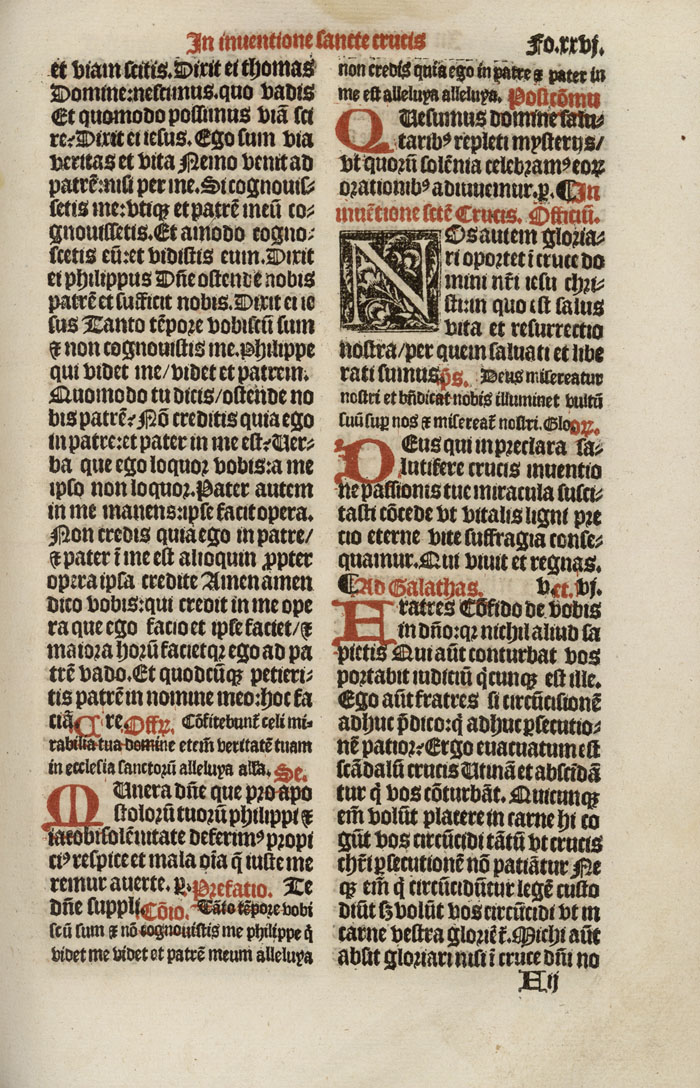 In inventione sancte crucis
Fo.xxvj.
et viam scitis. Dixit ei thomas
Domine: nescimus. quo vadis
Et quomodo possumus viā sci
re? Dixit ei iesus. Ego sum via
veritas et vita Nemo venit ad
patrē: nisi per me. Si cognouis⸗
setis me: vtiqꝫ et patrē meū co⸗
gnouissetis. Et amodo cogno⸗
scetis eū: et vidistis eum. Dixit
ei philippus Dñe ostende nobis
patrē et sufficit nobis. Dixit ei ie
sus Tanto tēpore vobiscū sum
⁊ non cognouistis me. Philippe
qui videt me/videt et patrem.
Quomodo tu dicis/ostende no
bis patrē? Nō creditis quia ego
in patre: et pater in me est? Ver⸗
ba que ego loquor vobis: a me
ipso non loquor. Pater autem
in me manens: ipse facit opera.
Non credis quia ego in patre/
⁊ pater ī me est alioquin ꝓpter
opera ipsa credite Amen amen
dico vobis: qui credit in me ope
ra que ego facio et ipse faciet/⁊
maiora horū facietqꝛ ego ad pa
trē vado. Et quodcūqꝫ petieri⸗
tis patrē in nomine meo: hoc fa
ciā ¶ re. Offꝝ. Cōfitebunt᷑ celi mi⸗
rabilia tua domine etem̄ veritatē tuam
in ecclesia sanctorū alleluya alła. Se.
MUnera dñe que pro apo
stolorū tuorū philippi ⁊
iacobi solēnitate deferimꝰ propi
ciꝰ respice et mala oīa q̄ iuste me
remur auerte. p. Prefatio. Te
dñe suppli Cōio. Tāto tēpore vobi
scū sum ⁊ nō cognouistis me philippe q̄
videt me videt et patrē meum alleluya
non credis quia ego in patre ⁊ pater in
me est alleluya alleluya. Postcōmu
QUesumus domine salu⸗
taribꝰ repleti mysterijs/
vt quorū solēnia celebramꝰ eoꝝ
orationibꝰ adiuuemur. p. ¶In
inuētione sctē Crucis. Officiū.
NOs autem gloria⸗
ri oportet ī cruce do
mini nr̄i iesu chri⸗
sti: in quo est salus
vita et resurrectio
nostra/per quem saluati et libe
rati sumus p̄s. Deus misereatur
nostri et bñdicat nobis illuminet vultū
suū suꝑ nos ⁊ misereat᷑ nostri. Glo oꝝ.
DEus qui in preclara sa⸗
lutifere crucis inuentio
ne passionis tue miracula susci⸗
tasti cōcede vt vitalis ligni pre
cio eterne vite suffragia conse⸗
quamur. Qui viuit et regnas.
¶Ad Galathas. v. et. vj.
FRatres Cōfido de vobis
in dño: qꝛ nichil aliud sa
pietis Qui aūt conturbat vos
portabit iudiciū q̄cunqꝫ est ille.
Ego aūt fratres si circūcisionē
adhuc p̄dico: q̇ adhuc ꝑsecutio⸗
nē patior? Ergo euacuatum est
scādalū crucis Utinā et abscidā
tur q̇ vos cōturbāt. Quicunqꝫ
em̄ volūt placere in carne hi co
gūt vos circūcidi tātū vt crucis
chr̄i ꝑsecutionē nō patiātur Ne
qꝫ em̄ q̇ circūcidūtur legē custo
diūt sꝫ volūt vos circūcidi vt in
carne vestra gloriēt᷑. Michi aūt
absit gloriari nisi ī cruce dñi no
E ij